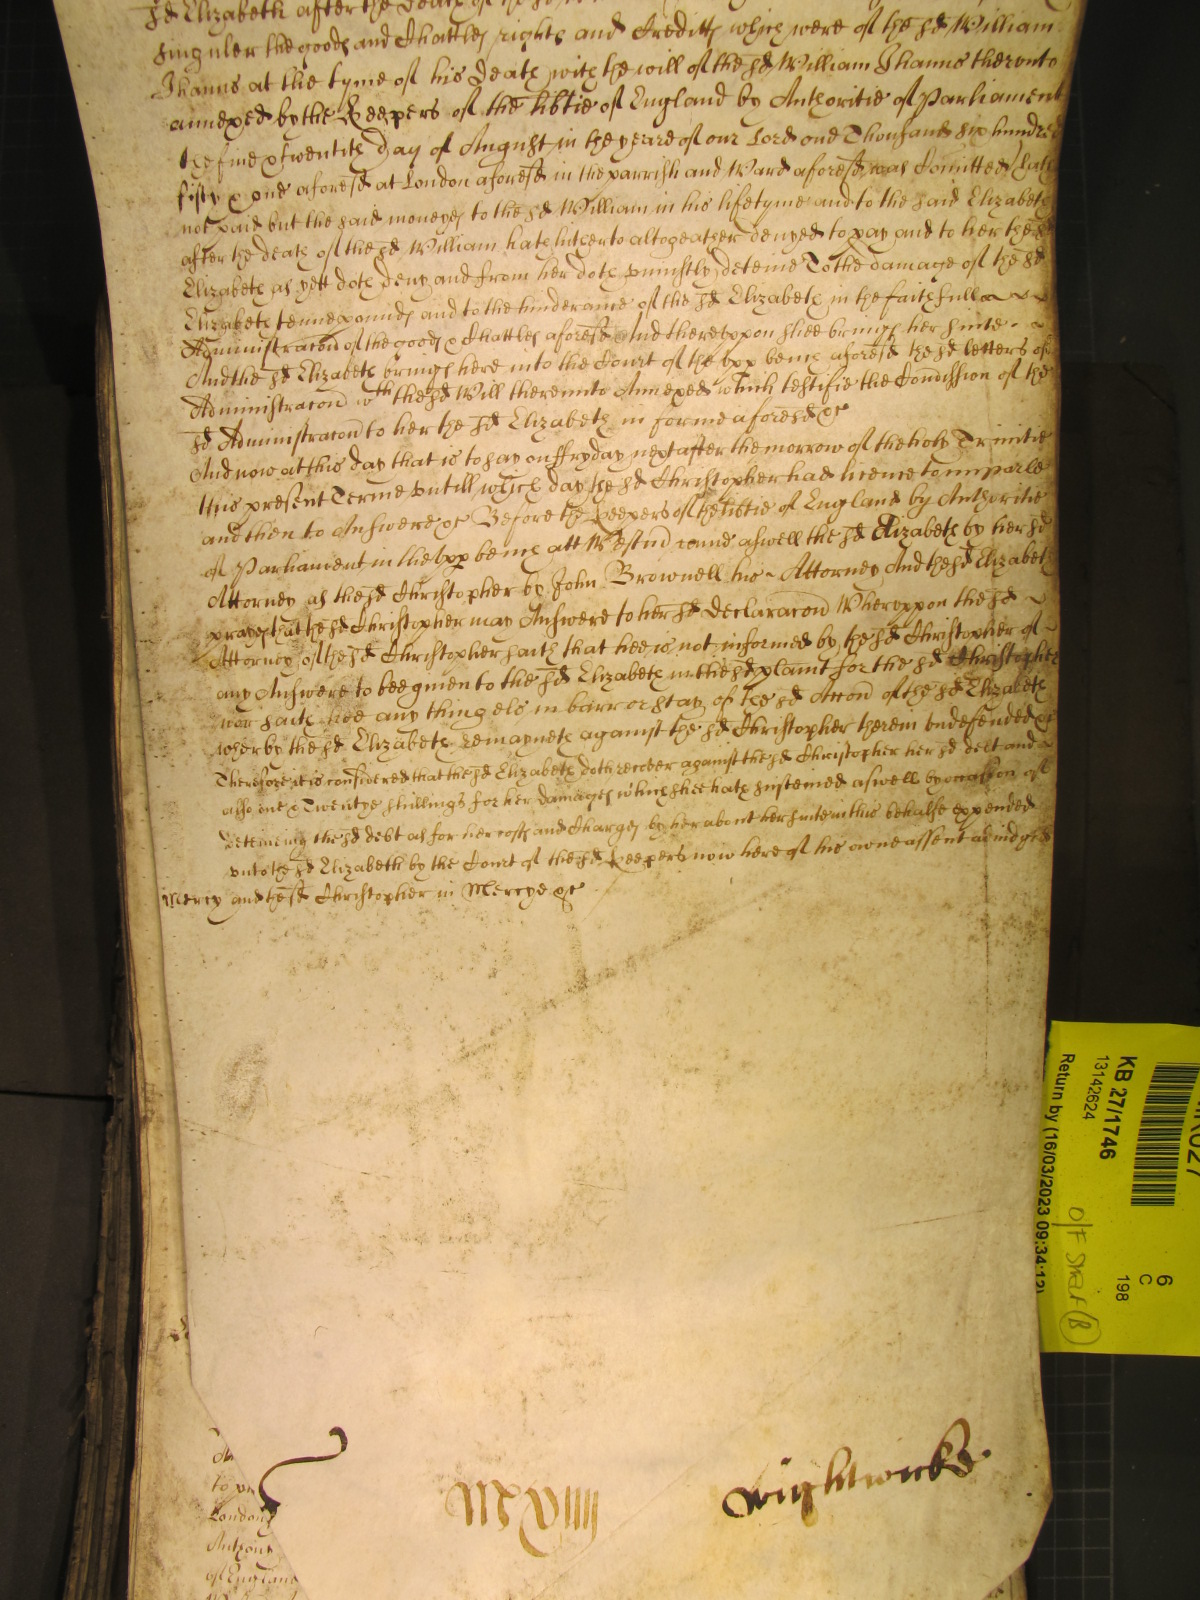 sd Elizabeth after the death of the sd
singuler the goods and Chattles rights and Creditts which were of the sd William
Channs at the tyme of his death with the will of the sd William Channs therunto
annexed by the Keepers of the libtie of England by Authoritie of Parliament
the five & twentith day of August in the yeare of our Lord one Thousand six hundred
fifty & one aforesd at London aforesd in the parrish and Ward aforesd was Comitted hath
not paid but the said moneyes to the sd William in his lifetyme and to the said Elizabeth
after the death of the sd William hath hitherto altogeather denyed to pay and to her the sd
Elizabeth as yett doth deny and from her doth uniustly deteine To the damage of the sd
Elizabeth tenne pounds and to the hinderance of the sd Elizabeth in the faithfull
Administracon of the goods & Chattles aforesd And thereuppon shee brings her suite
And the sd Elizabeth brings here into the Court of the upp bench aforesd the sd letters of
Administracon wth the sd Will thereunto Annexed which testifie the Comission of the
sd Administracon to her the sd Elizabeth in forme aforesd &c
And now at this day that is to say on ffryday next after the morrow of the holy Trinitie
this present Terme untill which day the sd Christopher had licence to imparle
and then to Answere &c Before the keepers of the libtie of England by Authoritie
of Parliament in the upp bench att Westm come aswell the sd Elizabeth by her sd
Attorney as the sd Christopher by John Brownell his Attorney And the sd Elizabeth
prayes that the sd Christopher may Answere to her sd declaracon Whereuppon the sd
Attorney of the sd Christopher saith that hee is not informed by the sd Christopher of
any Answere to bee given to the sd Elizabeth in the sd plaint for the sd Christopher
nor saith hee any thing els in barr or stay of the sd Accon of the sd Elizabeth
wherby the sd Elizabeth remayneth against the sd Christopher therein undefended &c
Therefore it is considered that the sd Elizabeth doth recover against the sd Christopher her sd debt and
also one & Twentye shillings for her damages which shee hath susteined aswell by occasion of
deteineing the sd debt as for her costs and Charges by her about her suite in this behalfe expended
unto the sd Elizabeth by the Court of the sd keepers now here of his owne assent adiudged
Mercy and the sd Christopher in Mercye &c
Wightwicke
London
Anthony
of England
KB 27/1746
13142624
Return by (16/03/2023 09:34:12)
6
C
198